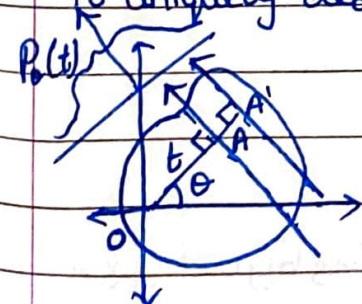 P_θ(t)
A'
A
t
θ
O